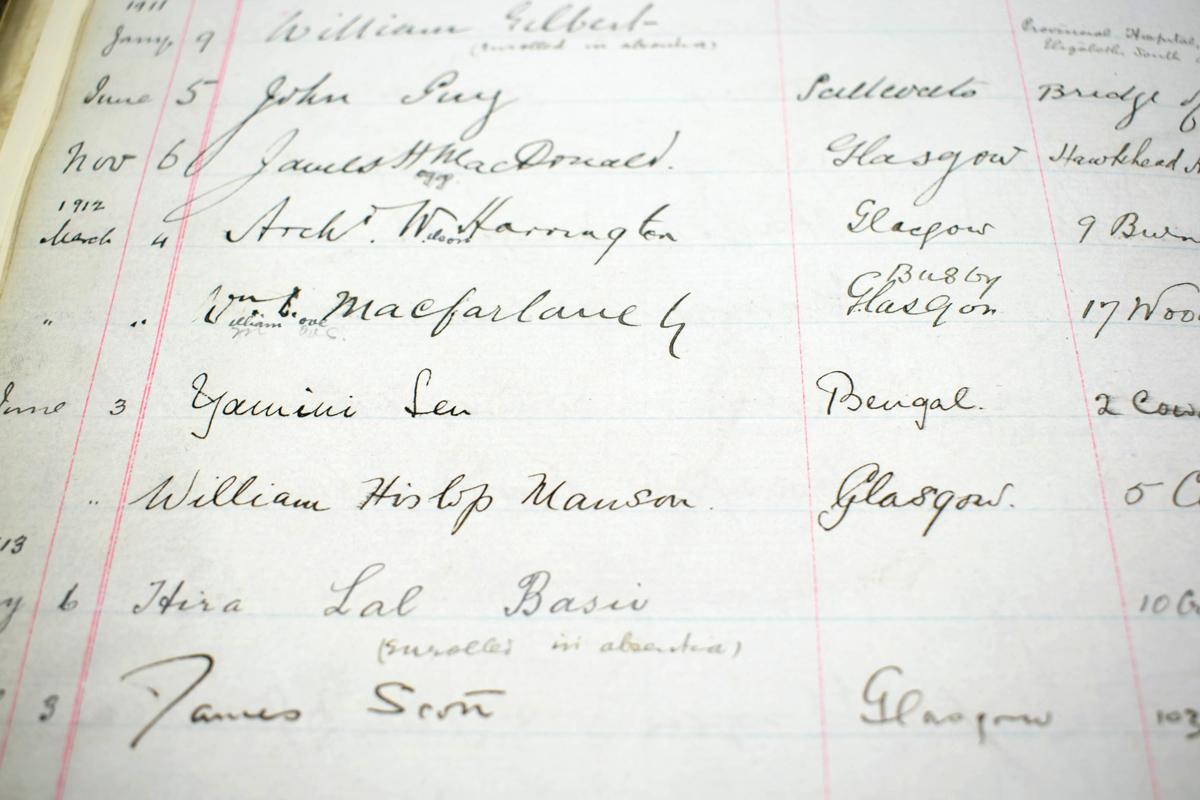 1911
Jany 9 William Gilbert Provincial Hospital
(Enrolled in absentia) Elizabeth South
June 5 John Guy Saltcoats Bridge of
Nov 6 James H MacDonald. Glasgow Hawkhead
ogg
1912
March 4 Archd. Wilson Harrington Glasgow 9 Burn
Busby
" " Wm L. Macfarlane Glasgow 17 Wood
William
June 3 Yamini Sen Bengal. 2
" William Hislop Manson. Glasgow. 5 C
13
y 6 Hira Lal Basu 10 G
(Enrolled in absentia)
3 James Scott Glasgow 103